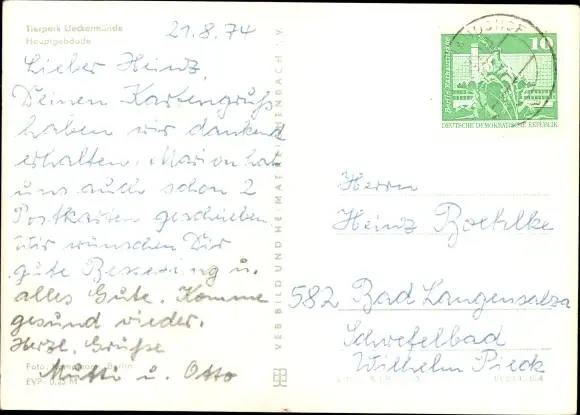 Tierpark Ueckermünde
Hauptgebäude
21.8.74
Lieber Heinz,
Deinen Kartengruß
haben wir dankend
erhalten. Marion hat
uns auch schon 2
Postkarten geschrieben
Wir wünschen Dir
gute Besserung u.
alles Gute. Komme
gesund wieder.
Herzl. Grüße
Mutti u. Otto
Foto: Berlin
EVP: 0.25 M
VEB BILD UND HEIMAT REICHENBACH i. V.
10
Berlin, Rathausstraße
DEUTSCHE DEMOKRATISCHE REPUBLIK
Herrn
Heinz Boehlke
582 Bad Langensalza
Schwefelbad
Wilhelm Pieck